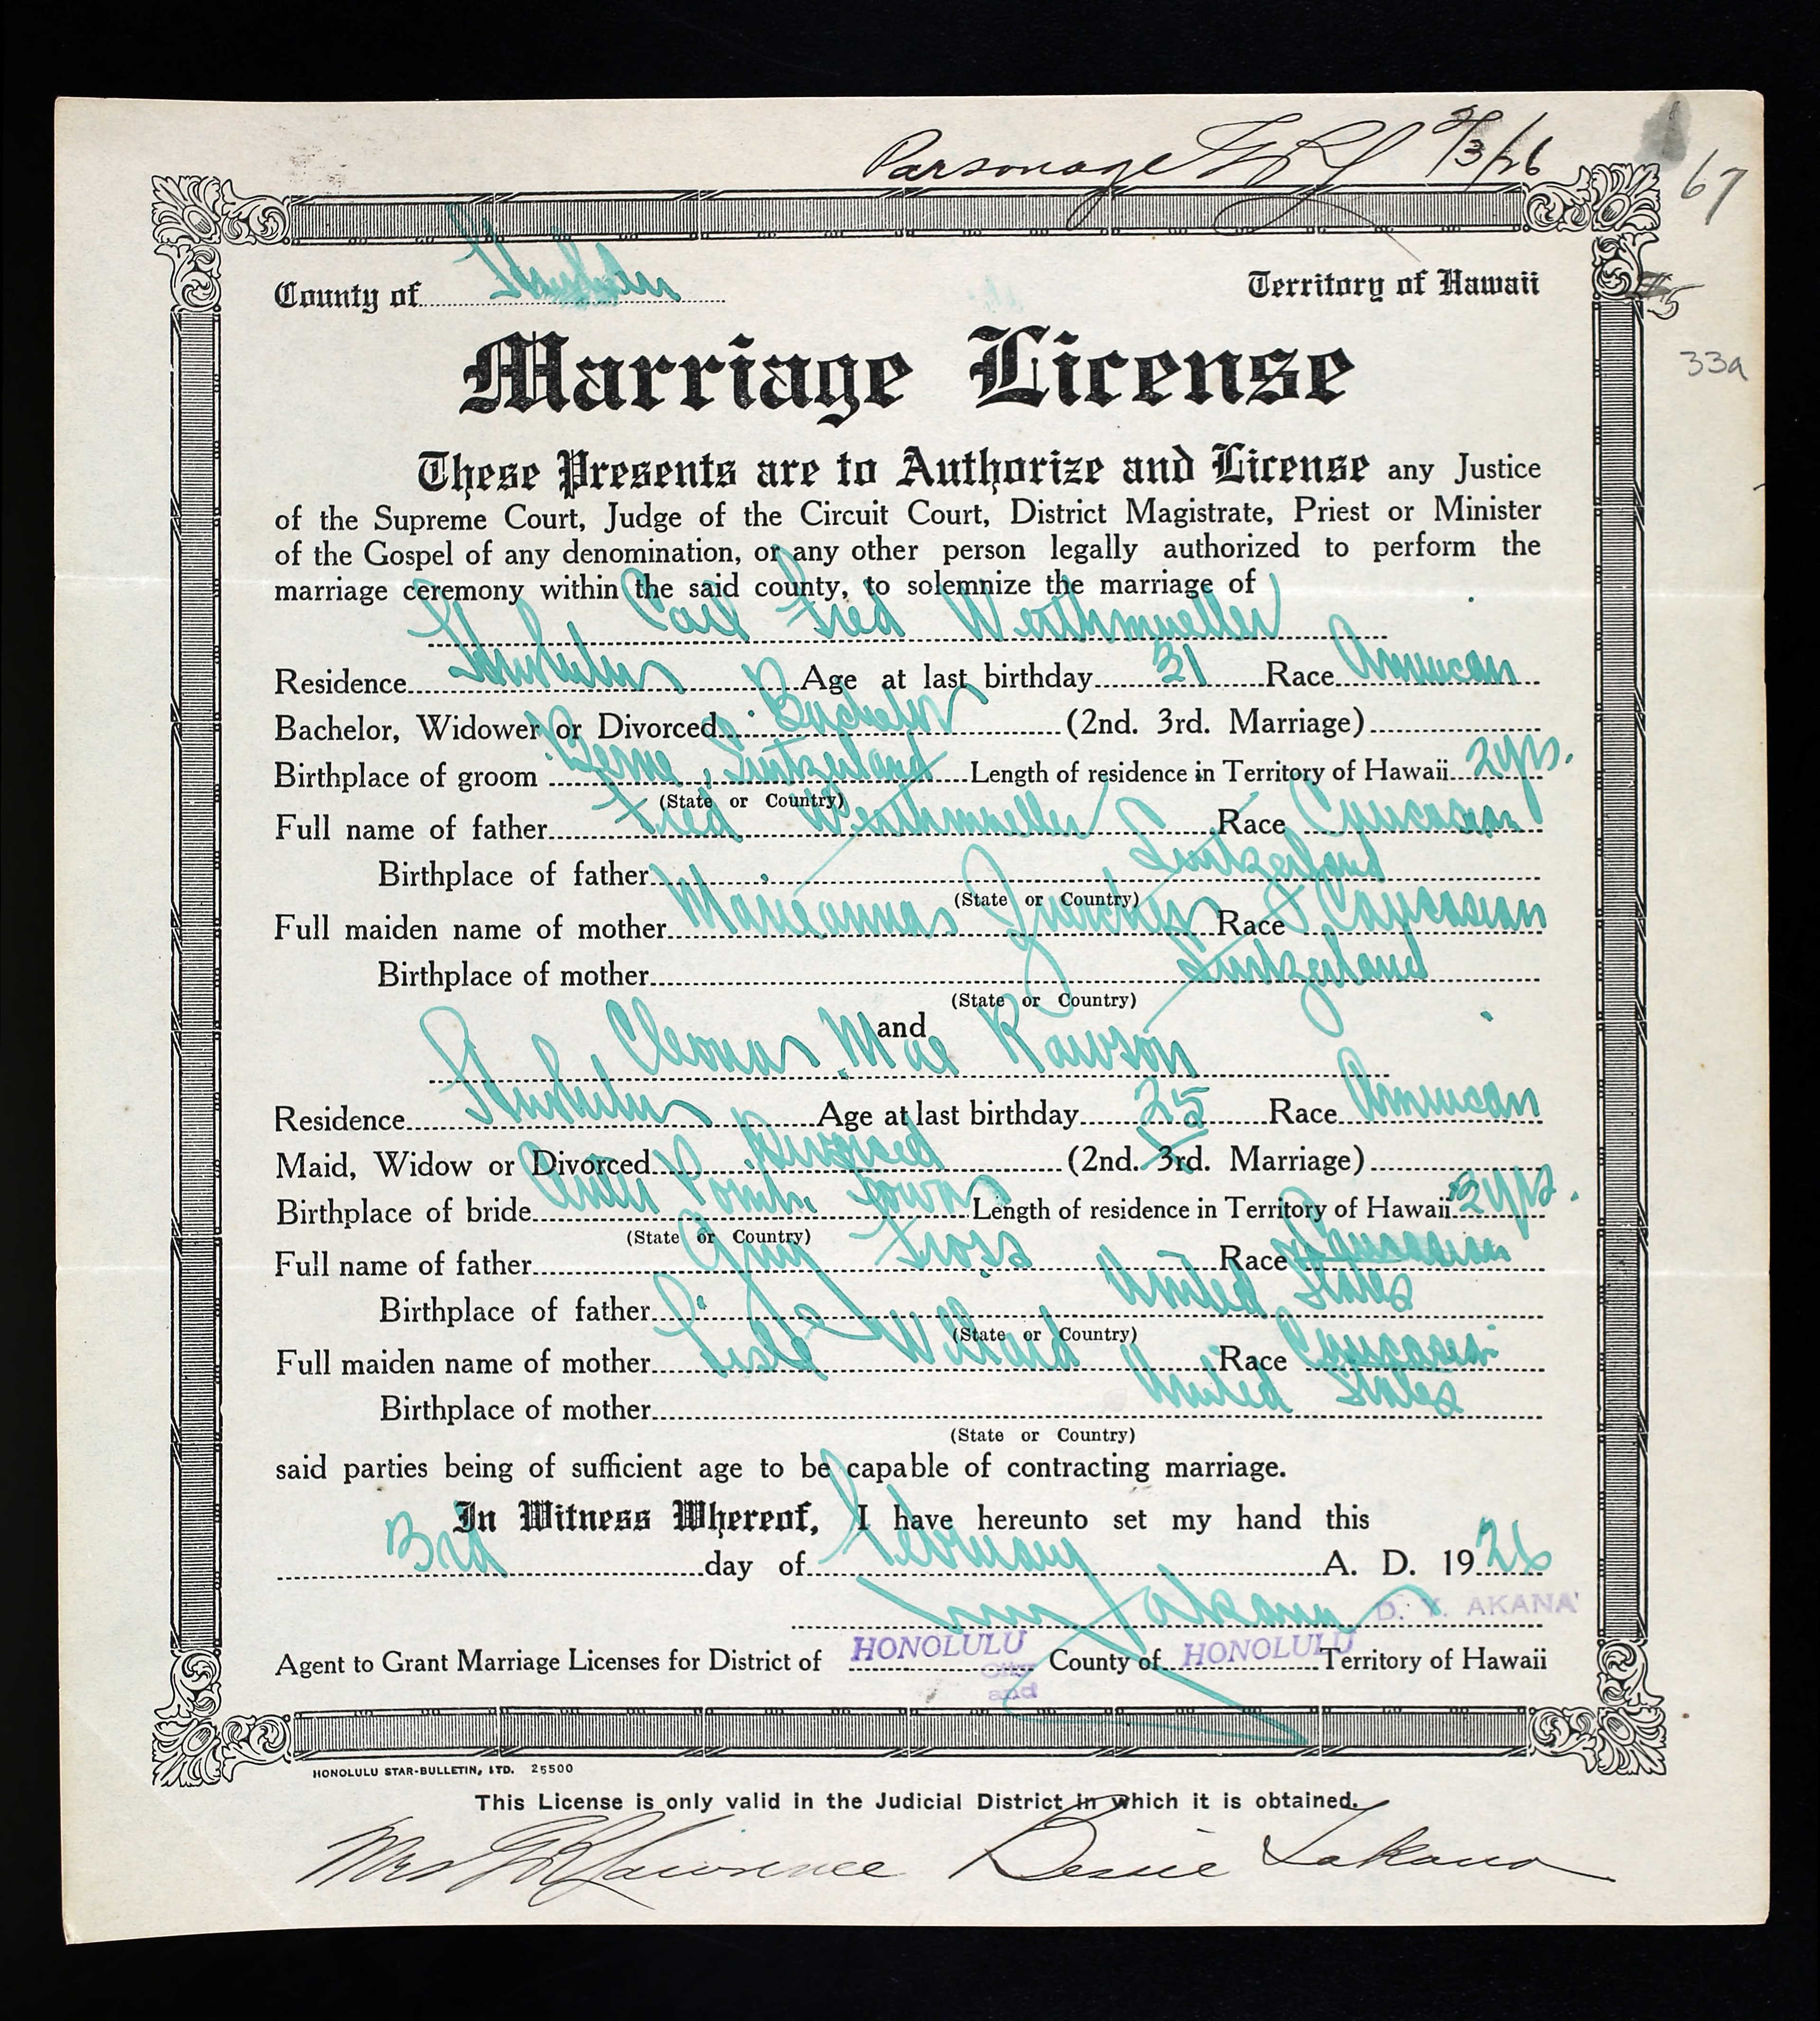 Parsonage 2/3/26
67
County of Honolulu Territory of Hawaii
5
Marriage License
33a
These Presents are to Authorize and License any Justice
of the Supreme Court, Judge of the Circuit Court, District Magistrate, Priest or Minister
of the Gospel of any denomination, or any other person legally authorized to perform the
marriage ceremony within the said county, to solemnize the marriage of
Carl Fred Werthmueller
Residence Honolulu Age at last birthday 31 Race American
Bachelor, Widower or Divorced Bachelor (2nd. 3rd. Marriage)
Birthplace of groom Berne, Switzerland Length of residence in Territory of Hawaii 2 yrs.
(State or Country)
Full name of father Fred Werthmueller Race Caucasian
Birthplace of father Switzerland
(State or Country)
Full maiden name of mother Marieanna Race Caucasian
Birthplace of mother Switzerland
(State or Country)
and
Cleona Mae Rawson
Residence Honolulu Age at last birthday 25 Race American
Maid, Widow or Divorced Divorced (2nd. 3rd. Marriage)
Birthplace of bride Center Point, Iowa Length of residence in Territory of Hawaii 2 yrs.
(State or Country)
Full name of father Guy Race Caucasian
Birthplace of father United States
(State or Country)
Full maiden name of mother Willard Race Caucasian
Birthplace of mother United States
(State or Country)
said parties being of sufficient age to be capable of contracting marriage.
In Witness Whereof, I have hereunto set my hand this
3rd day of February A. D. 1926
Akana D. Y. AKANA
Agent to Grant Marriage Licenses for District of HONOLULU City and County of HONOLULU Territory of Hawaii
HONOLULU STAR-BULLETIN, LTD. 25500
This License is only valid in the Judicial District in which it is obtained.
Mrs F R Lawrence Bessie Takano